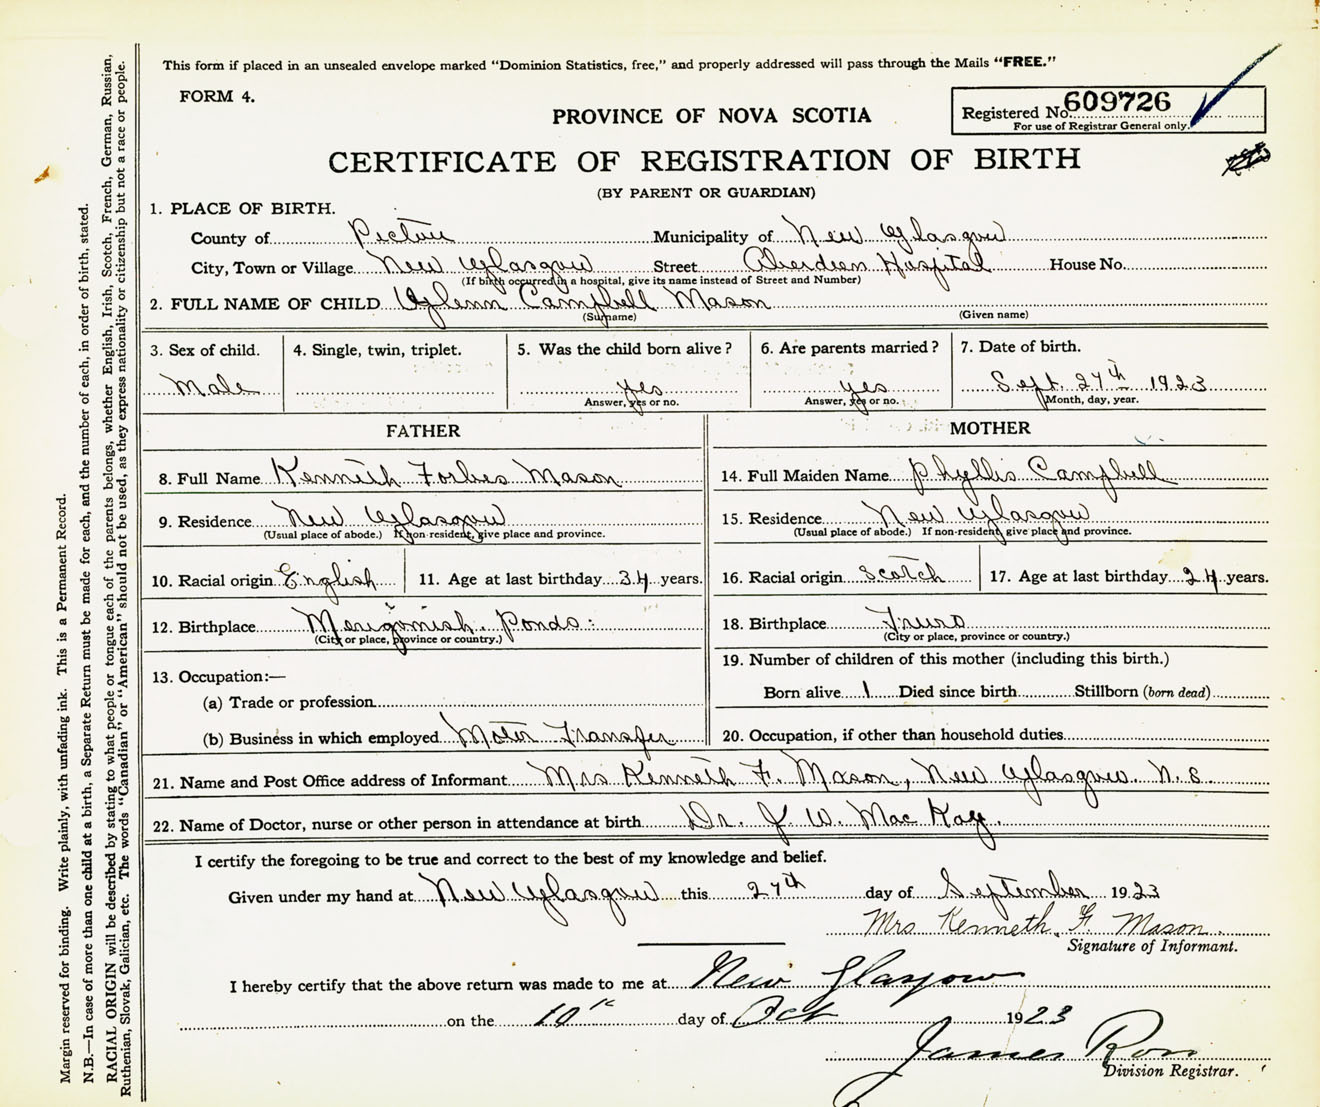 This form if placed in an unsealed envelope marked "Dominion Statistics, free," and properly addressed will pass through the Mails "FREE."
FORM 4.
Registered No. 609726
For use of Registrar General only.
PROVINCE OF NOVA SCOTIA
CERTIFICATE OF REGISTRATION OF BIRTH
(BY PARENT OR GUARDIAN)
1. PLACE OF BIRTH.
County of Pictou Municipality of New Glasgow
City, Town or Village New Glasgow Street Aberdeen Hospital House No.
(If birth occurred in a hospital, give its name instead of Street and Number)
2. FULL NAME OF CHILD Glenn Campbell Mason
(Surname) (Given name)
3. Sex of child. 4. Single, twin, triplet. 5. Was the child born alive? 6. Are parents married? 7. Date of birth.
Male yes yes Sept. 27th 1923
Answer, yes or no. Answer, yes or no. Month, day, year.
FATHER MOTHER
8. Full Name Kenneth Forbes Mason 14. Full Maiden Name Phyllis Campbell
9. Residence New Glasgow 15. Residence New Glasgow
(Usual place of abode.) If non-resident, give place and province. (Usual place of abode.) If non-resident, give place and province.
10. Racial origin English 11. Age at last birthday 34 years. 16. Racial origin Scotch 17. Age at last birthday 24 years.
12. Birthplace Merigomish Ponds: 18. Birthplace Truro
(City or place, province or country.) (City or place, province or country.)
13. Occupation:— 19. Number of children of this mother (including this birth.)
(a) Trade or profession Born alive 1 Died since birth Stillborn (born dead)
(b) Business in which employed Motor Transfer 20. Occupation, if other than household duties
21. Name and Post Office address of Informant Mrs Kenneth F. Mason, New Glasgow. N.S.
22. Name of Doctor, nurse or other person in attendance at birth Dr. J W. MacKay.
I certify the foregoing to be true and correct to the best of my knowledge and belief.
Given under my hand at New Glasgow this 27th day of September 1923
Mrs Kenneth F Mason.
Signature of Informant.
I hereby certify that the above return was made to me at New Glasgow
on the 10th day of Oct 1923
James
Division Registrar.
Margin reserved for binding. Write plainly, with unfading ink. This is a Permanent Record.
N.B.—In case of more than one child at a birth, a Separate Return must be made for each, and the number of each, in order of birth, stated.
RACIAL ORIGIN will be described by stating to what people or tongue each of the parents belongs, whether English, Irish, Scotch, French, German, Russian,
Ruthenian, Slovak, Galician, etc. The words "Canadian" or "American" should not be used, as they express nationality or citizenship but not a race or people.